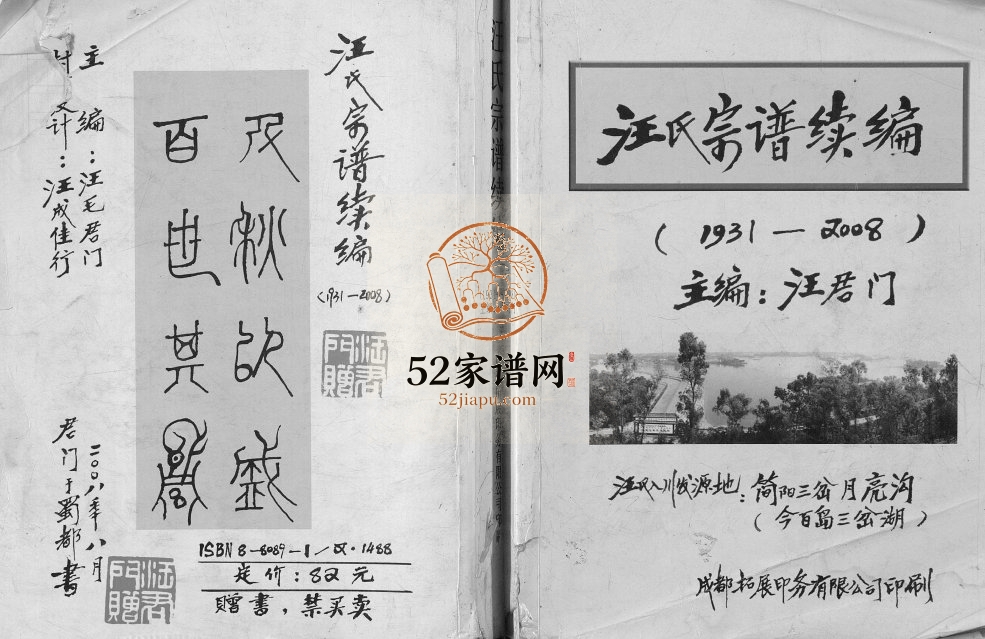 汪氏宗谱续编
（1931—2008）
主编：汪君门
汪氏入川发源地：简阳三岔月亮沟
（今百岛三岔湖）
成都拓展印务有限公司印刷
汪氏宗谱续编
52家谱网
52jiapu.com
汪氏宗谱续编
（1931—2008）
汪君门赠
百世其昌
主编：汪毛君门
设计：汪成佳行
二00八年八月
君门于蜀都书
汪君门赠
ISBN 8-8089-1/2·1488
定价：82元
赠书，禁买卖